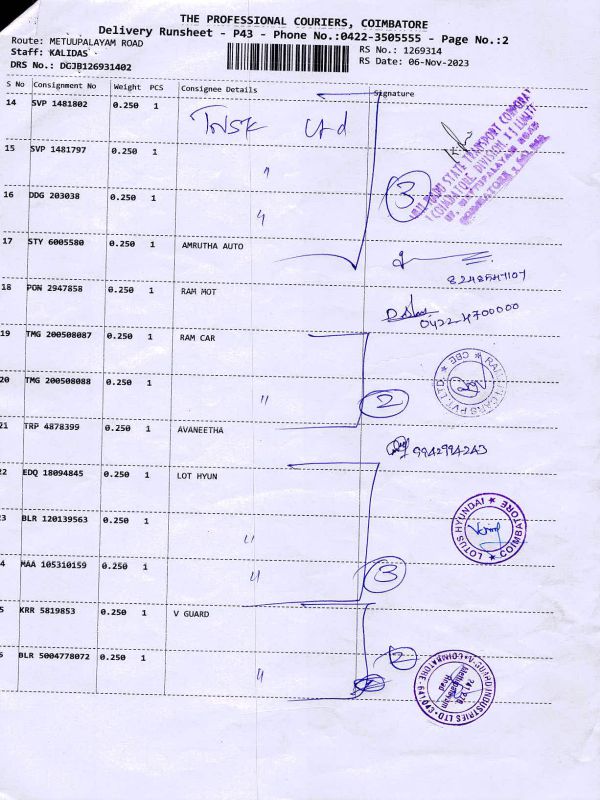 THE PROFESSIONAL COURIERS, COIMBATORE
Delivery Runsheet - P43 - Phone No.:0422-3505555 - Page No.:2
Route: METUUPALAYAM ROAD
Staff: KALIDAS
DRS No.: DGJB126931402
RS No.: 1269314
RS Date: 06-Nov-2023
S No Consignment No Weight PCS Consignee Details Signature
14 SVP 1481802 0.250 1 TNSK Ltd
15 SVP 1481797 0.250 1 "
16 DDG 203038 0.250 1 " 3
17 STY 6005580 0.250 1 AMRUTHA AUTO
8248547107
18 PON 2947858 0.250 1 RAM MOT
0422 4700000
19 TMG 200508087 0.250 1 RAM CAR
20 TMG 200508088 0.250 1 " 2
21 TRP 4878399 0.250 1 AVANEETHA 9942994243
22 EDQ 18094845 0.250 1 LOT HYUN
LOTUS HYUNDAI ★ COIMBATORE ★
3 BLR 120139563 0.250 1 "
4 MAA 105310159 0.250 1 " 3
5 KRR 5819853 0.250 1 V GUARD
BLR 5004778072 0.250 1 " 2